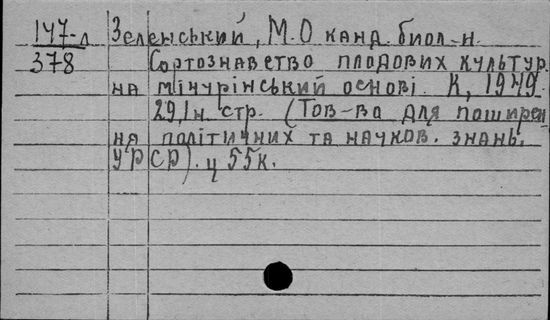 147-л Зеленський, М.О канд. биол-н.
378 Сортознавство плодових культур
на мічурінський основі. К, 1949.
29,1н. стр. (Тов-ва для поширен
ня політичних та науков. знань.
УРСР). ц 55к.